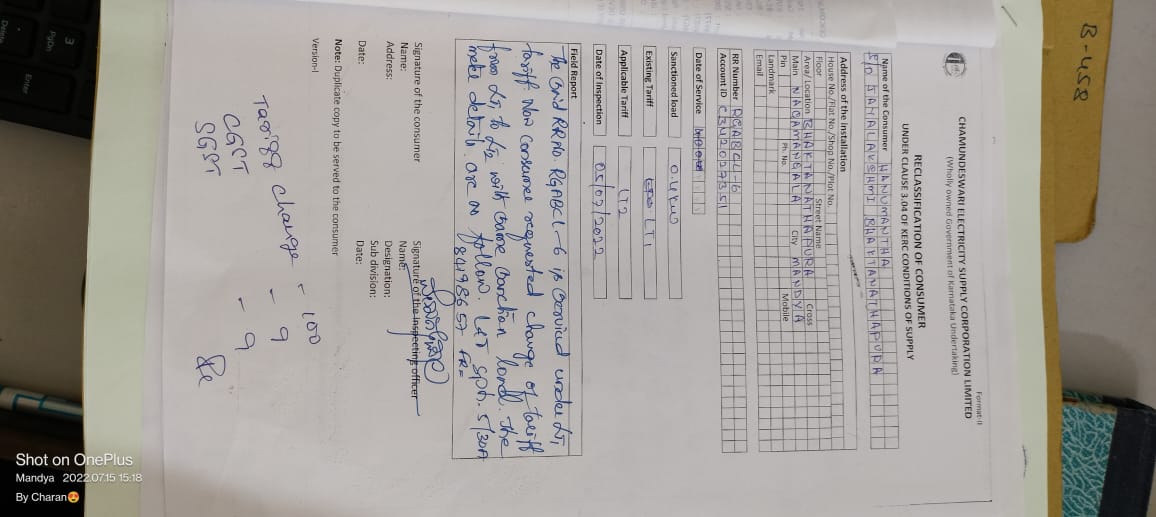 B-458
Format-II
CHAMUNDESWARI ELECTRICITY SUPPLY CORPORATION LIMITED
(Wholly owned Government of Karnataka Undertaking)
RECLASSIFICATION OF CONSUMER
UNDER CLAUSE 3.04 OF KERC CONDITIONS OF SUPPLY
Name of the Consumer HANUMANTHA
S/O JAYALAKSHMI BHAKTANATHAPURA
Address of the Installation
House No./Flat No./Shop No./Plot No.
Floor Street Name
Area/ Location BHAKTANATHAPURA Cross
Main NAGAMANGALA City MANDYA
Pin Ph. No. Mobile
Landmark
Email
RR Number RGABCL-6
Account ID
Date of Service
Sanctioned load 0.4KW
Existing Tariff LT1
Applicable Tariff LT2
Date of Inspection 05/07/2022
Field Report
The RR No. RGABCL-6 is serviced under LT1
tariff. Now consumer requested change of tariff
from LT1 to LT2 with same sanction load. The
meter details are as follow. L&T SPh. 5/30A
8498657 FR=
Signature of the consumer Signature of the Inspecting officer
Name: Name:
Address: Designation:
Sub division:
Date: Date:
Note: Duplicate copy to be served to the consumer
Version-I
Tariff change - 100
CGST - 9
SGST - 9
3
PgDn
Enter
Delete
Shot on OnePlus
Mandya 2022.07.15 15:18
By Charan😍